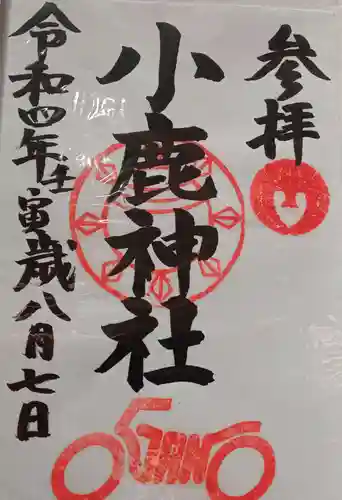 参拝
小鹿神社
令和四年壬寅歳八月七日